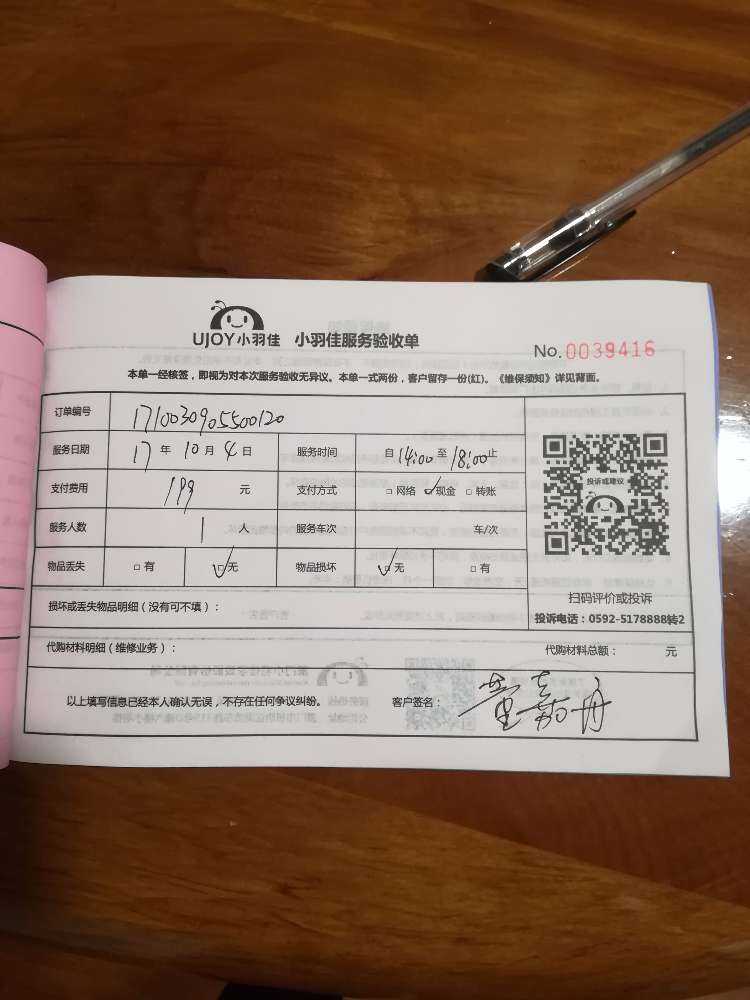 UJOY小羽佳 小羽佳服务验收单
No.0039416
本单一经核签，即视为对本次服务验收无异议。本单一式两份，客户留存一份(红)。《维保须知》详见背面。
订单编号 1710030905500120
服务日期 17 年 10 月 4 日 服务时间 自 14:00 至 18:00 止
支付费用 199 元 支付方式 □ 网络 ☑ 现金 □ 转账
服务人数 1 人 服务车次 车/次
物品丢失 □ 有 ☑ 无 物品损坏 ☑ 无 □ 有
投诉或建议
扫码评价或投诉
投诉电话：0592-5178888转2
损坏或丢失物品明细（没有可不填）：
代购材料明细（维修业务）： 代购材料总额： 元
以上填写信息已经本人确认无误，不存在任何争议纠纷。 客户签名：